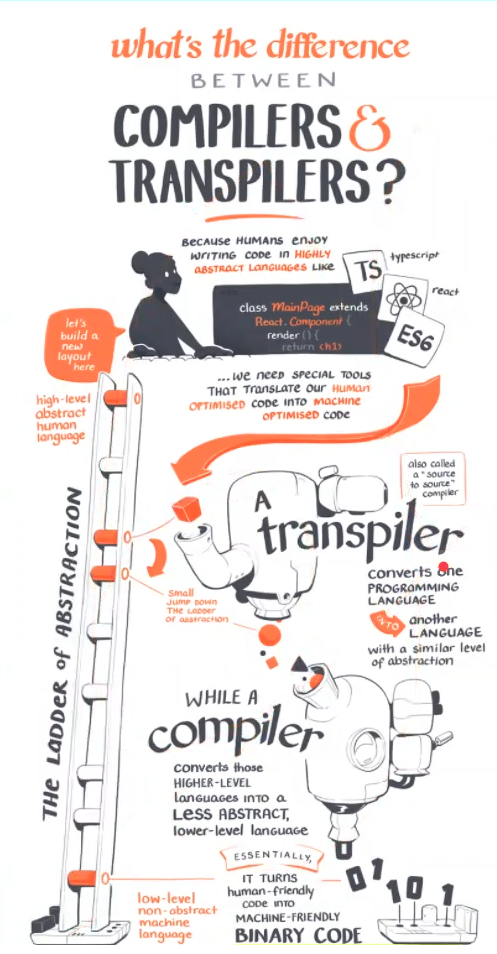 what's the difference
BETWEEN
COMPILERS &
TRANSPILERS?
BECAUSE HUMANS ENJOY
WRITING CODE IN HIGHLY
ABSTRACT LANGUAGES LIKE
TS
typescript
react
ES6
class MainPage extends
React.Component {
render () {
return <h1>
let's
build a
new
layout
here
...WE NEED SPECIAL TOOLS
THAT TRANSLATE OUR HUMAN
OPTIMISED CODE INTO MACHINE
OPTIMISED CODE
high-level
abstract
human
language
THE LADDER of ABSTRACTION
also called
a "source
to source"
compiler
A
transpiler
converts one
PROGRAMMING
LANGUAGE
INTO
another
LANGUAGE
with a similar level
of abstraction
Small
Jump down
THE Ladder
of abstraction
WHILE A
compiler
converts those
HIGHER-LEVEL
languages into a
LESS ABSTRACT,
lower-level language
ESSENTIALLY,
IT TURNS
human-friendly
code into
MACHINE-FRIENDLY
BINARY CODE
low-level
non-abstract
machine
language
0 1
1 0 1